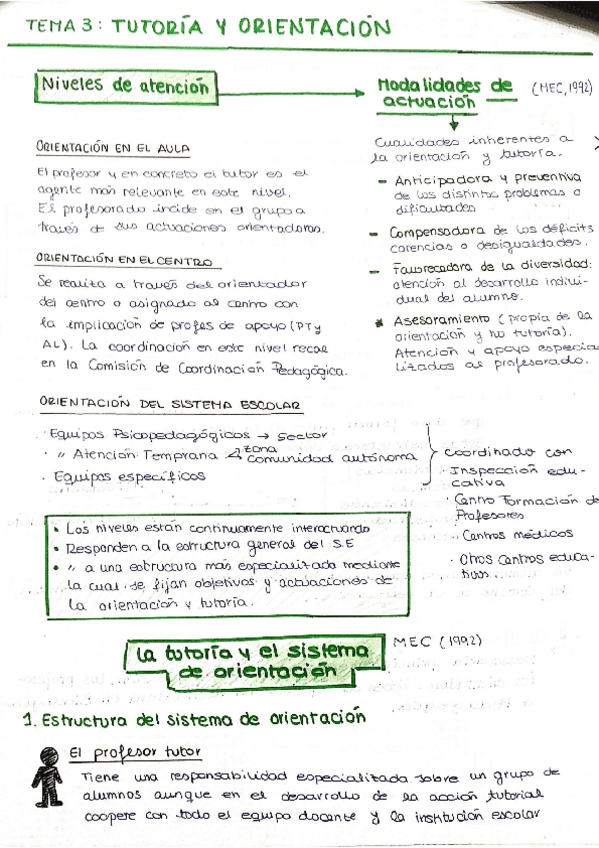 TEMA 3: TUTORÍA Y ORIENTACIÓN
Niveles de atención
ORIENTACIÓN EN EL AULA
El profesor y en concreto el tutor es el
agente más relevante en este nivel.
El profesorado incide en el grupo a
través de sus actuaciones orientadoras.
ORIENTACIÓN EN EL CENTRO
Se realiza a través del orientador
del centro o asignado al centro con
la implicación de profes de apoyo (PT y
AL). La coordinación en este nivel recae
en la Comisión de Coordinación Pedagógica.
Modalidades de
actuación
(MEC, 1992)
Cualidades inherentes a
la orientación y tutoría.
- Anticipadora y preventiva
de los distintos problemas o
dificultades
- Compensadora de los déficits
carencias o desigualdades.
- Favorecedora de la diversidad:
atención al desarrollo indivi-
dual del alumno.
* Asesoramiento (propia de la
orientación y no tutoría).
Atención y apoyo especia
lizados al profesorado.
ORIENTACIÓN DEL SISTEMA ESCOLAR
· Equipos Psicopedagógicos → Sector
· " Atención Temprana zona
comunidad autónoma
· Equipos específicos
coordinado con
· Inspección edu-
cativa
· Centro Formación de
Profesores
· Centros médicos
· Otros centros educa-
tivos.
• Los niveles están continuamente interactuando
• Responden a la estructura general del S.E
• " a una estructura más especializada mediante
la cual se fijan objetivos y actuaciones de
la orientación y tutoría.
La tutoría y el sistema
de orientación
MEC (1992)
1. Estructura del sistema de orientación
El profesor tutor
Tiene una responsabilidad especializada sobre un grupo de
alumnos aunque en el desarrollo de la acción tutorial
coopere con todo el equipo docente y la institución escolar